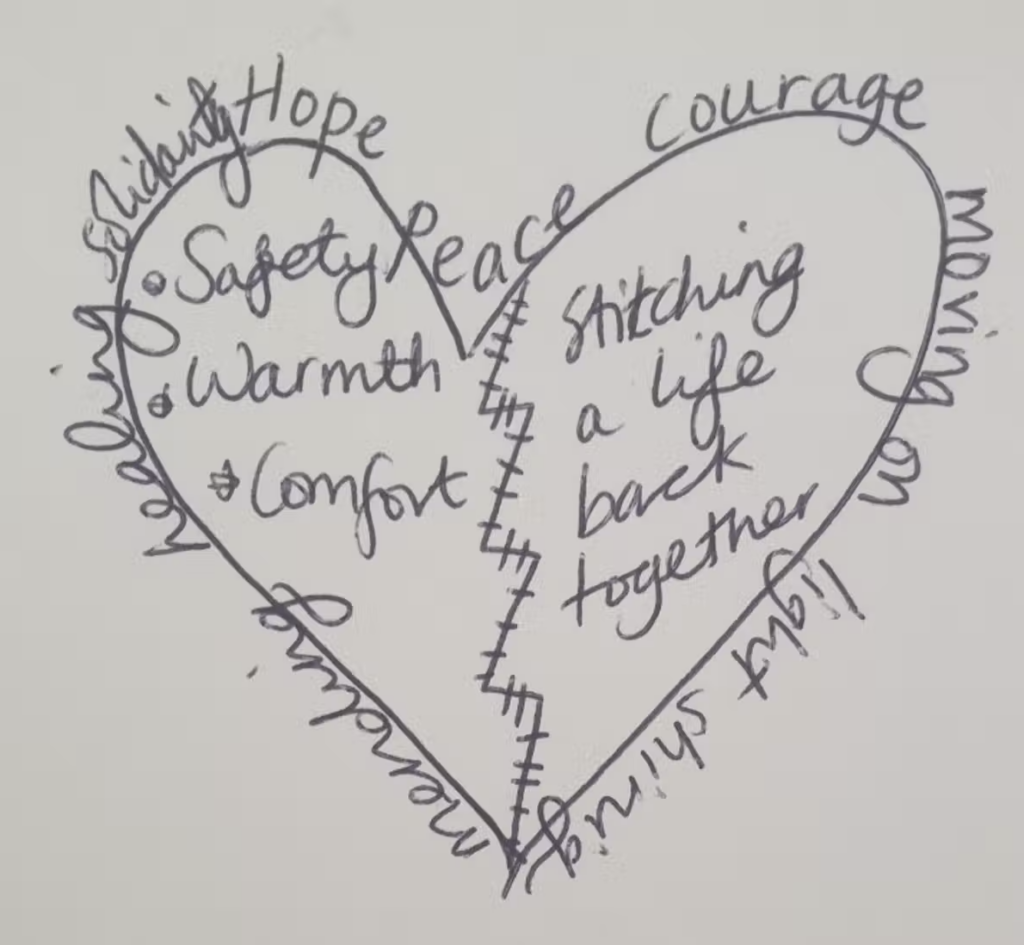 Solidarity
Hope
Peace
Courage
Moving on
light shining
mending
Healing
Safety
Warmth
Comfort
Stitching
a life
back
together